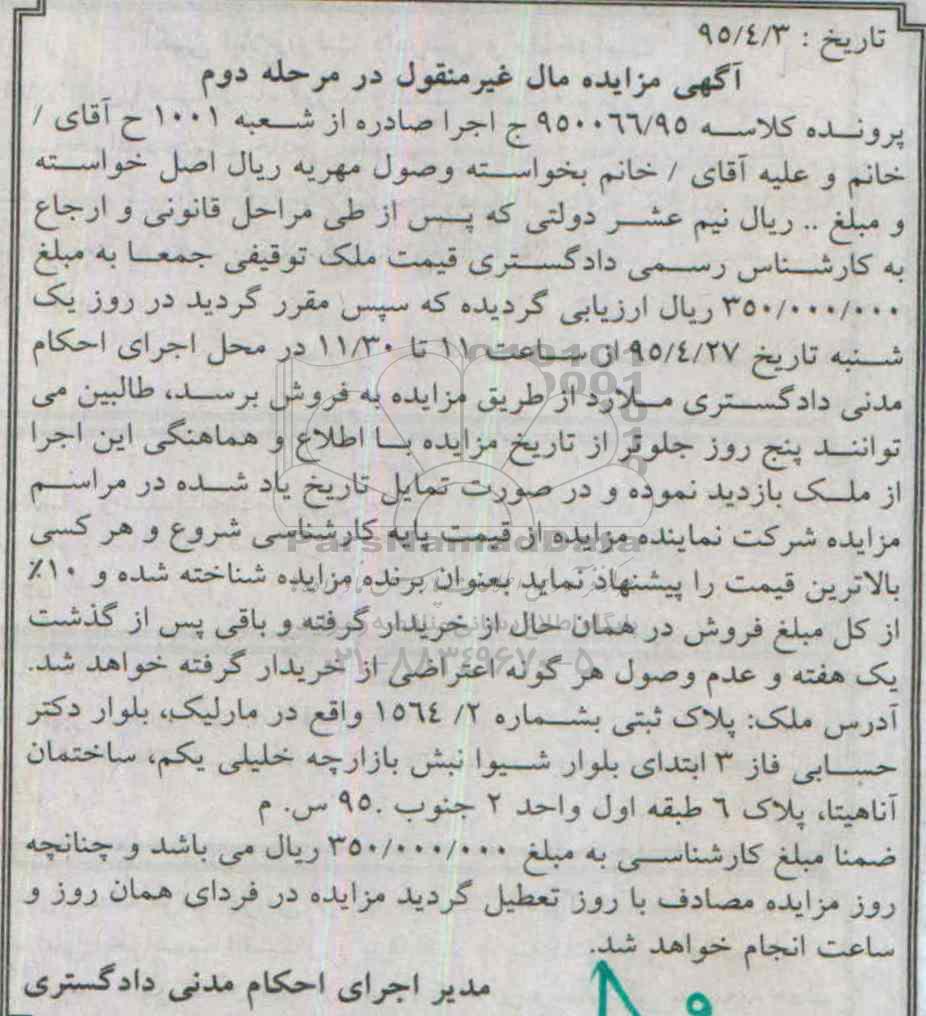 تاریخ : ۹۵/٤/۳
آگهی مزایده مال غیرمنقول در مرحله دوم
پرونده کلاسه ۹۵۰۰٦٦/۹۵ ج اجرا صادره از شعبه ۱۰۰۱ ح آقای /
خانم و علیه آقای / خانم بخواسته وصول مهریه ریال اصل خواسته
و مبلغ .. ریال نیم عشر دولتی که پس از طی مراحل قانونی و ارجاع
به کارشناس رسمی دادگستری قیمت ملک توقیفی جمعا به مبلغ
۳۵۰/۰۰۰/۰۰۰ ریال ارزیابی گردیده که سپس مقرر گردید در روز یک
شنبه تاریخ ۹۵/٤/۲۷ از ساعت ۱۱ تا ۱۱/۳۰ در محل اجرای احکام
مدنی دادگستری ملارد از طریق مزایده به فروش برسد، طالبین می
توانند پنج روز جلوتر از تاریخ مزایده با اطلاع و هماهنگی این اجرا
از ملک بازدید نموده و در صورت تمایل تاریخ یاد شده در مراسم
مزایده شرکت نماینده مزایده از قیمت پایه کارشناسی شروع و هر کسی
بالاترین قیمت را پیشنهاد نماید بعنوان برنده مزایده شناخته شده و ۱۰٪
از کل مبلغ فروش در همان حال از خریدار گرفته و باقی پس از گذشت
یک هفته و عدم وصول هر گونه اعتراضی از خریدار گرفته خواهد شد.
آدرس ملک: پلاک ثبتی بشماره ۲/ ۱۵٦٤ واقع در مارلیک، بلوار دکتر
حسابی فاز ۳ ابتدای بلوار شیوا نبش بازارچه خلیلی یکم، ساختمان
آناهیتا، پلاک ٦ طبقه اول واحد ۲ جنوب .۹۵ س. م
ضمنا مبلغ کارشناسی به مبلغ ۳۵۰/۰۰۰/۰۰۰ ریال می باشد و چنانچه
روز مزایده مصادف با روز تعطیل گردید مزایده در فردای همان روز و
ساعت انجام خواهد شد.
مدیر اجرای احکام مدنی دادگستری
ParsNamadData
۰۲۱-۸۸۳۴۹۶۷۰-۵